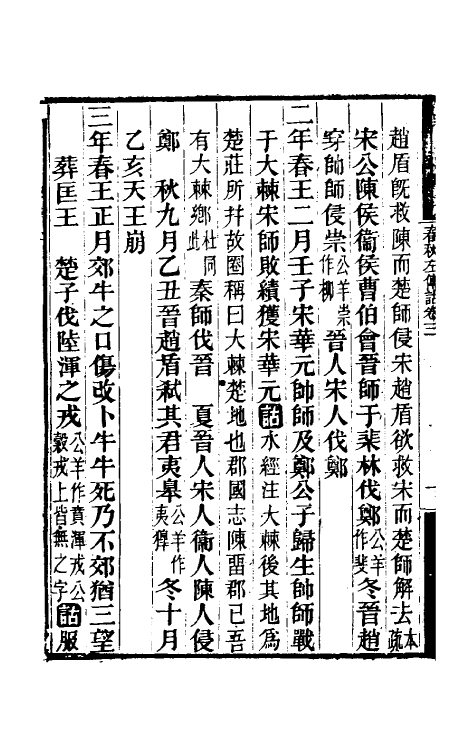 趙盾旣救陳而楚師侵宋趙盾欲救宋而楚師解去本疏
宋公陳侯衞侯曹伯會晉師于棐林伐鄭公羊作斐冬晉趙
穿帥師侵崇公羊崇作柳 晉人宋人伐鄭
二年春王二月壬子宋華元帥師及鄭公子歸生帥師戰
于大棘宋師敗績獲宋華元詁水經注大棘後其地爲
楚莊所幷故圈稱曰大棘楚地也郡國志陳畱郡已吾
有大棘鄉杜同此 秦師伐晉 夏晉人宋人衞人陳人侵
鄭 秋九月乙丑晉趙盾弑其君夷皋公羊作夷獋 冬十月
乙亥天王崩
三年春王正月郊牛之口傷改卜牛牛死乃不郊猶三望
葬匡王 楚子伐陸渾之戎公羊作賁渾戎公穀戎上皆無之字詁服
春秋左傳詁卷三